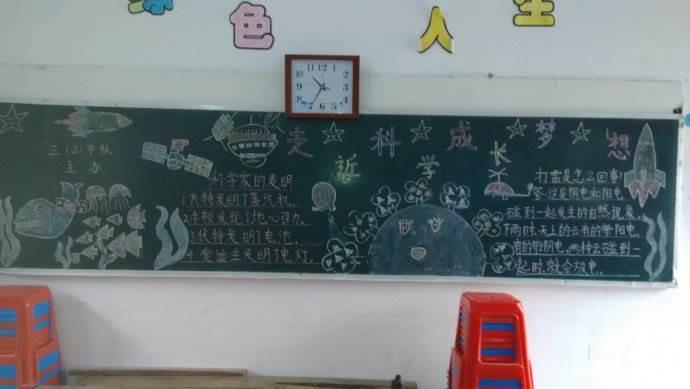 绿色人生
三(2)中队
主办
走近科学 成长梦想
科学家的发明
1.瓦特发明了蒸汽机。
2.牛顿发现了地心引力。
3.伏特发明了电池。
4.爱迪生发明了电灯。
打雷是怎么回事?
答:这是阴电和阳电
碰到一起发生的自然现象。
下雨时,天上的云有的带阳电,
有的带阴电,两种云碰到一
起时,就会放电。